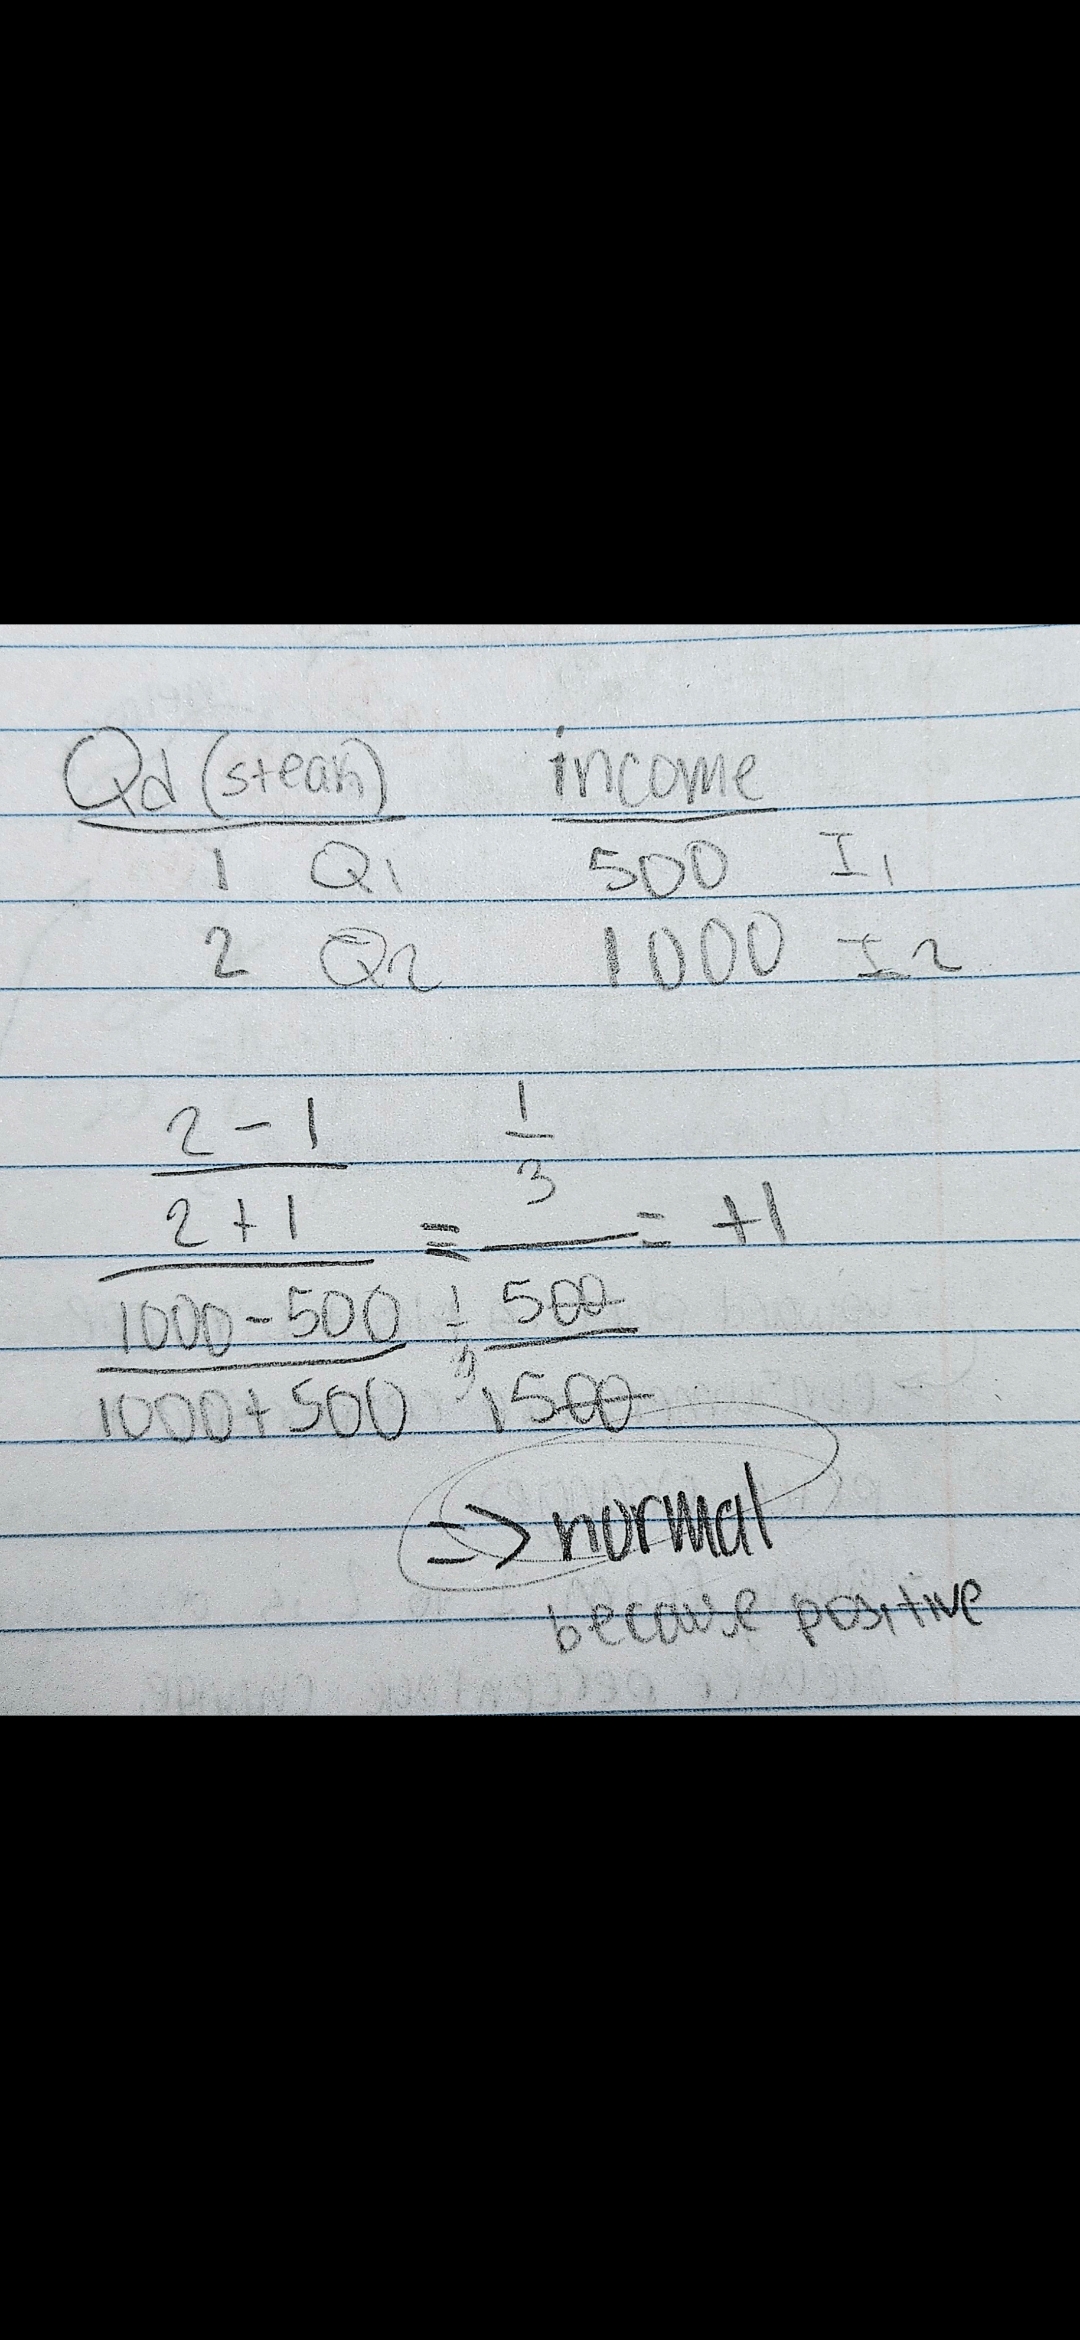 Qd (steak) income
1 Q1 500 I1
2 Q2 1000 I2
2 - 1 1
2 + 1 3
= = +1
1000 - 500 1 500
1000 + 500 3 1500
=> normal
because positive